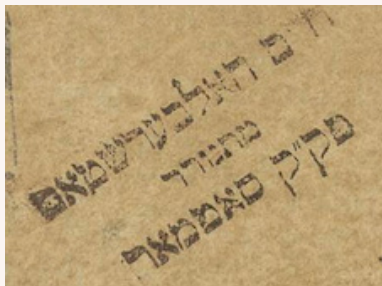 חיים האלבערשטאם
מתגורר
פק״ק סאטמאר